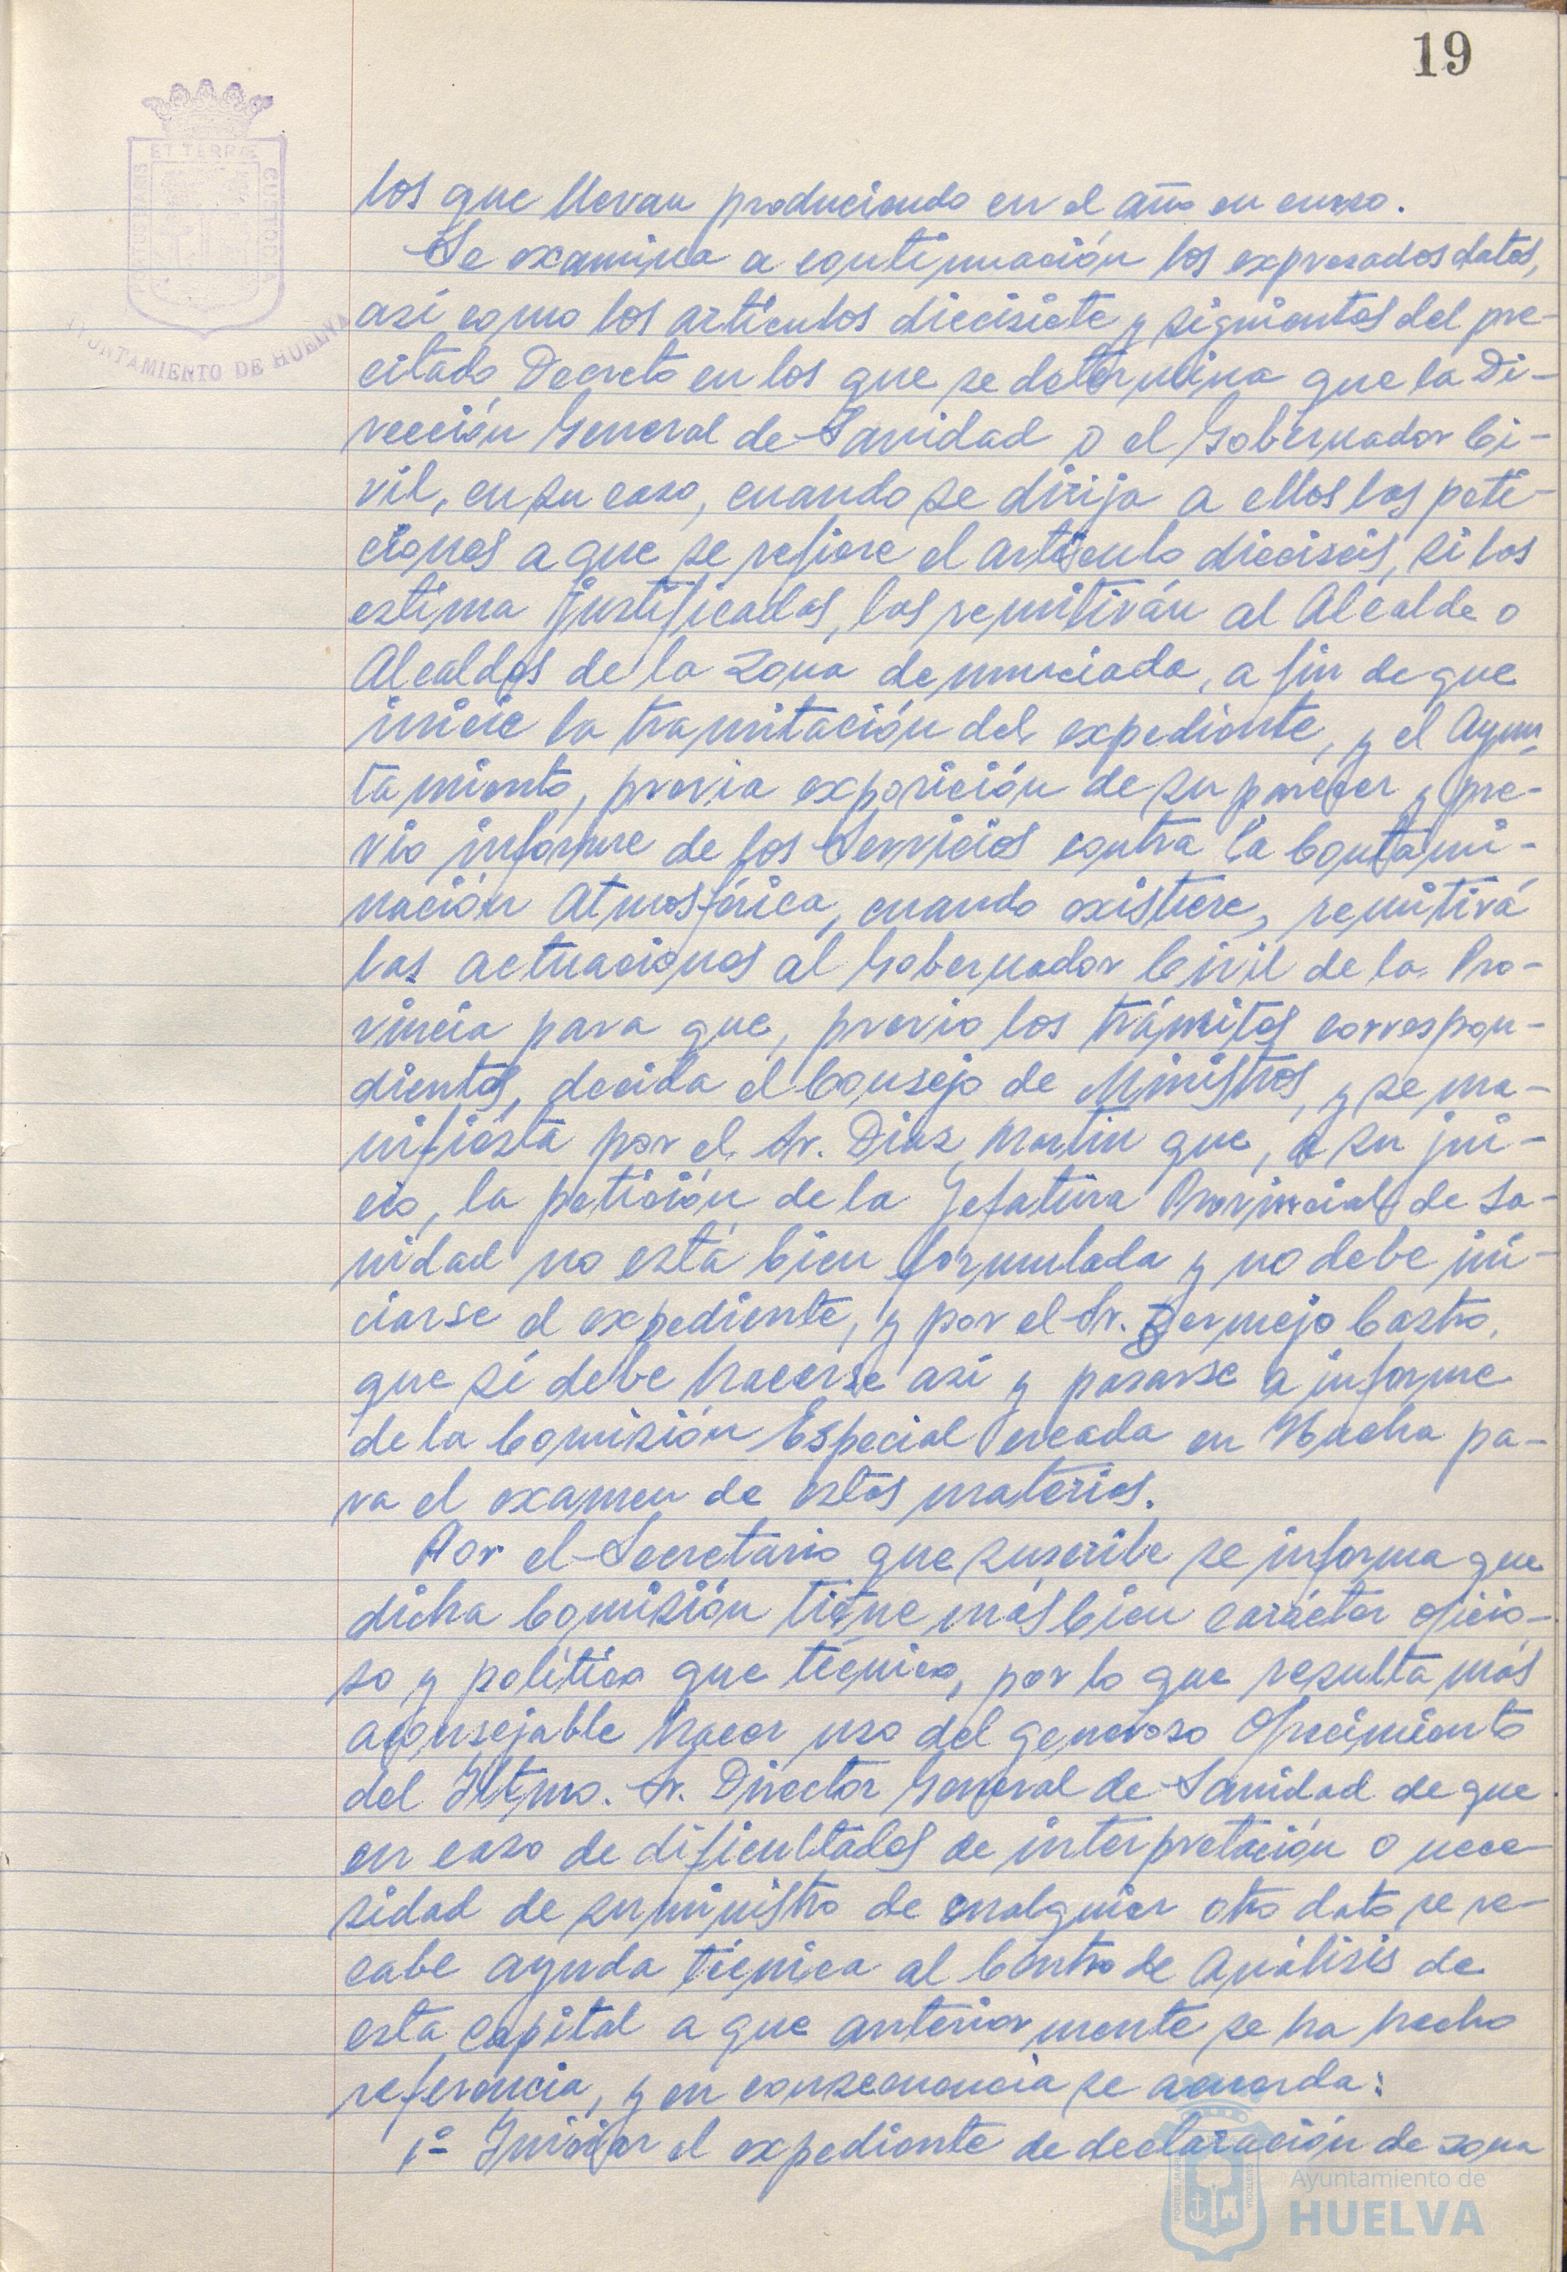 19
ET TERRÆ
CUSTODIA
AYUNTAMIENTO DE HUELVA
los que llevan produciendo en el año en curso.
Se examina a continuación los expresados datos,
así como los artículos diecisiete y siguientes del pre-
citado Decreto en los que se determina que la Di-
rección General de Sanidad o el Gobernador Ci-
vil, en su caso, cuando se dirija a ellos las peti-
ciones a que se refiere el artículo dieciseis, si los
estima justificadas, las remitirán al Alcalde o
Alcaldes de la zona denunciada, a fin de que
inicie la tramitación del expediente, y el Ayun-
tamiento, previa exposición de su parecer y pre-
vio informe de los Servicios contra la Contami-
nación Atmosférica, cuando existiere, remitirá
las actuaciones al Gobernador Civil de la Pro-
vincia para que, previo los trámites correspon-
dientes, decida el Consejo de Ministros, y se ma-
nifiesta por el Sr. Diaz Martin que, a su jui-
cio, la petición de la Jefatura Provincial de Sa-
nidad no está bien formulada y no debe ini-
ciarse el expediente, y por el Sr. Bermejo Castro,
que sí debe hacerse así y pasarse a informe
de la Comisión Especial creada en Huelva pa-
ra el examen de estas materias.
Por el Secretario que suscribe se informa que
dicha Comisión tiene más bien carácter oficio-
so y político que técnico, por lo que resulta más
aconsejable hacer uso del generoso ofrecimiento
del Iltmo. Sr. Director General de Sanidad de que
en caso de dificultades de interpretación o nece-
sidad de suministro de cualquier otro dato se re-
cabe ayuda técnica al Centro de Análisis de
esta capital a que anteriormente se ha hecho
referencia, y en consecuencia se acuerda:
1º Iniciar el expediente de declaración de zona
Ayuntamiento de
HUELVA